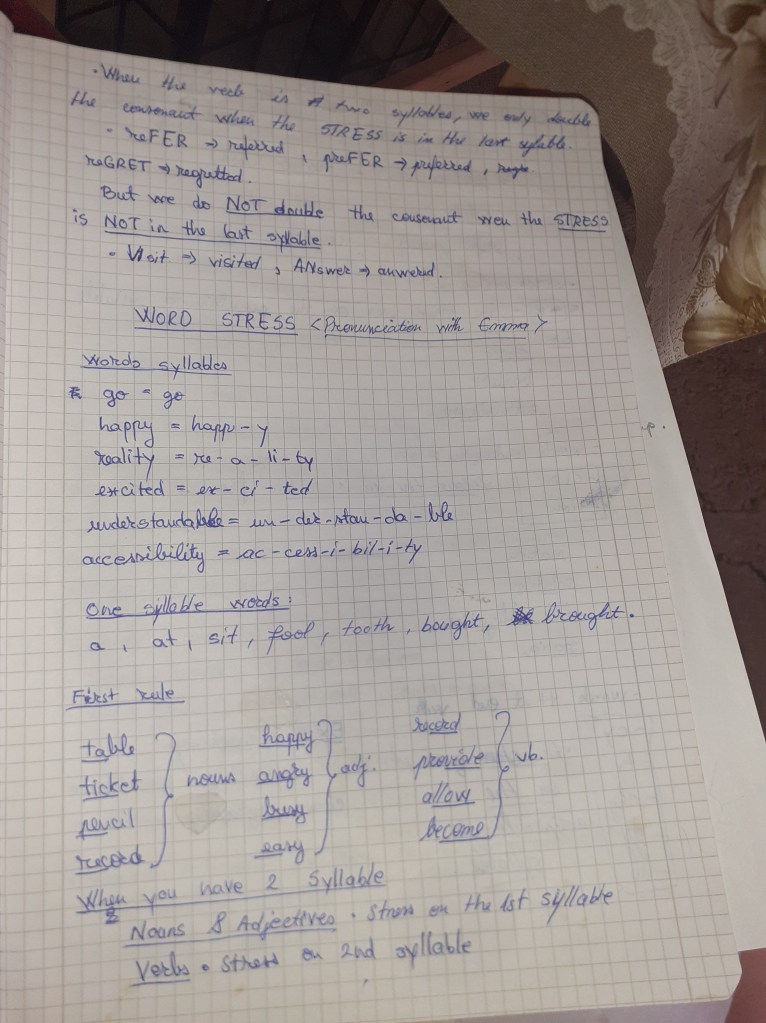 · When the verb is A two syllables, we only double
the consenant when the STRESS is in the last syllable.
- reFER → referred , preFER → preferred ,
reGRET → regretted.
But we do NOT double the consenant wen the STRESS
is NOT in the last syllable.
- VIsit → visited , ANswer → anwered.
WORD STRESS <Pronunciation with Emma>
Words syllables
go = go
happy = happ - y
reality = re - a - li - ty
excited = ex - ci - ted
understandable = un - der - stan - da - ble
accessibility = ac - cess - i - bil - i - ty
One syllable words:
a , at , sit , fool , tooth , bought , brought .
First rule
table
ticket
pencil
record
nouns
happy
angry
busy
easy
adj.
record
provide
allow
become
vb.
When you have 2 Syllable
Nouns & Adjectives · Stress on the 1st syllable
Verbs · Stress on 2nd syllable